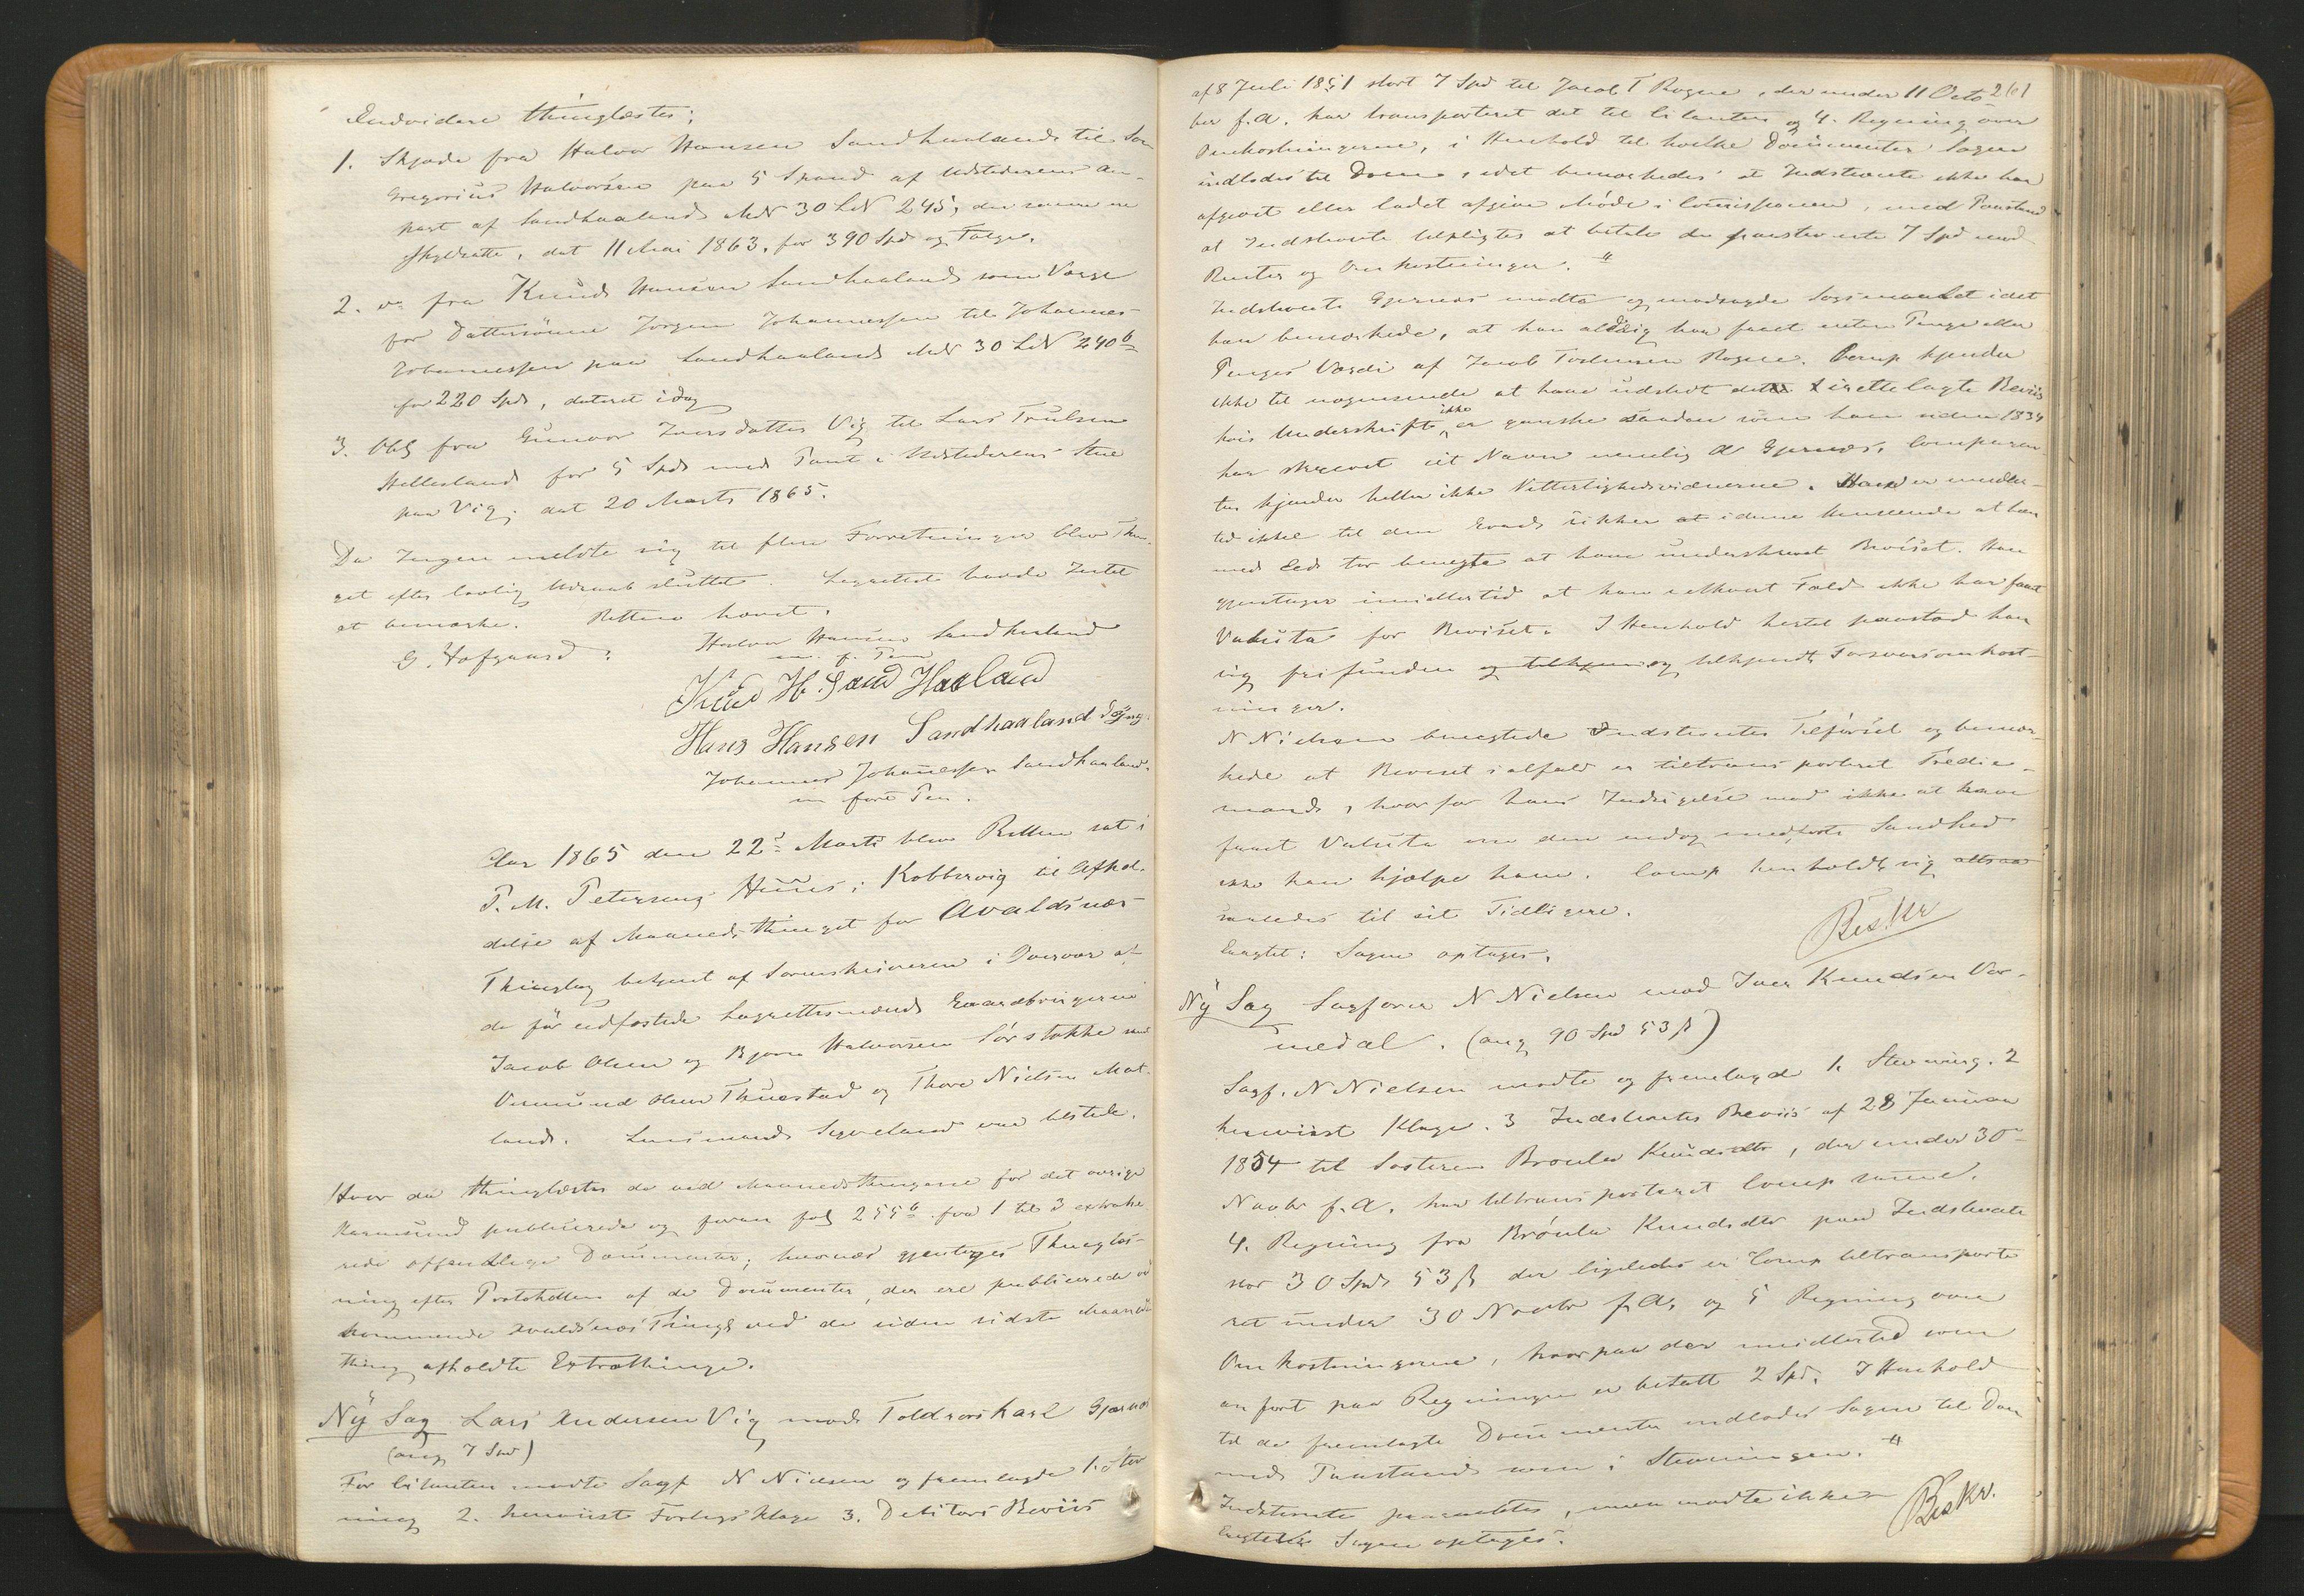 Endvidere thinglæstes:
1. Skjøde fra Halvor Hansen Sandhaaland til Søn
Gregorius Halvorsen paa 5 Spand af Udstederens an-
part af Sandhaaland MN 30 LN 245,
skyldsatte, dat 11 Mai 1863, for 390 Spd og Følge.
2. do fra Knud Hansen Sandhaaland som Værge
for Dattersønnen Jørgen Johannessen til Johannes
Johannessen paa Sandhaaland MN 30 LN 240b
for 220 Spd, dateret idag
3. Obl fra Gunvor Iversdatter Vig til Lars Trulsen
Hellesland for 5 Spd med Pant i Udstederens Stue
paa Vig, dat 20 Marts 1865.
Da Ingen meldte sig til flere Forretninger blev Thin-
get efter lovlig Udraab sluttet. Lagrettet havde Intet
at bemærke. Retten hævet.
G. Hofgaard: Halvor Hansen Sandhaaland
m. f. Pen
Knud H. Sand Haaland
Hans Hansen Sandhaaland
Johannes Johannessen Sandhaaland
m ført Pen.
Aar 1865 den 22de Marts blev Retten sat i
P. M. Petersens Huus i Kobbervig til Afhol-
delse af Maanedsthinget for Avaldsnæs
Thinglag betjent af Sorenskriveren i Overvær af
de før edfæstede Lagrettesmænd Gaardbrugerne
Jacob Olsen og Bjørn Halvorsen Sørstokke med
Vermund Olsen Thuestad og Thore Nielsen Mat-
land. Lensmand Syveland var tilstede.
Hvor da thinglæstes de ved Maanedsthingene for det øvrige
Karmsund publicerede og foran fol 255b fra 1 til 3 extrahe-
rede offentlige Documenter; hvornæst gjentoges Thinglæs-
ning efter Protokollen af de Documenter, der ere publicerede ved
kommende Avaldsnæs Thinglag ved de siden sidste Maaneds-
thing afholdte Extrathinge.
Ny Sag Lars Andersen Vig mod Toldroerskarl Gjernæs
(ang 7 Spd)
For Citanten mødte Sagf N Nielsen og fremlagde 1. Stev-
ning 2. henviist Forligsklage 3. Debitors Beviis
261
af 8 Juli 1851 stort 7 Spd til Jacob T Rogne, der under 11 Octo-
ber f.A. har transporteret det til Citanten og 4. Regning over
Omkostningerne, i Henhold til hvilke Documenter Sagen
indlodes til Doms, idet bemærkedes at Indstevnte ikke har
afgivet eller ladet afgive Møde i Commissionen, med Paastand
at Indstevnte tilpligtes at betale de paastevnte 7 Spd med
Renter og Omkostninger.
Indstevnte Gjernæs mødte og modsagde Søgsmaalet idet
han bemærkede, at han aldrig har faaet enten Penge eller
Penges Værdi af Jacob Rogne. Comp kjender
ikke til nogensinde at have udstedt det irettelagte Beviis
hvis Underskrift ikke er ganske saadan som han siden 1834
har skrevet sit Navn nemlig A Gjernæs. Comparen-
ten kjender heller ikke Vitterlighedsvidnerne. Han er imidler-
tid ikke til den Grad sikker i denne Henseende at han
med Eed tør benegte at have underskrevet Beviset. Han
gjentager imidlertid at han i ethvert Fald ikke har faaet
Valuta for Beviset. I Henhold hertil paastod han
sig frifunden og tilkjendt Forsvarsomkost-
ninger.
N Nielsen benegtede Indstevntes Tilførsel og bemær-
kede at Beviset i alfald er tiltransporteret Tredie-
mand, hvorfor hans Indsigelse mod ikke at have
faaet Valuta om den endog medførte Sandhed
ikke kan hjælpe ham. Comp henholdt sig
saaledes til sit Tidligere.
Eragtet: Sagen optages.
Beskr
Ny Sag Sagfører N Nielsen mod Iver Knudsen Vor-
medal. (ang 90 Spd 53 ß)
Sagf. N Nielsen mødte og fremlagde 1. Stevning. 2
henviist Klage. 3 Indstevntes Beviis af 28 Januar
1854 til Søsteren Brønla Knudsdtr, der under 30te
Novbr f.A. har tiltransporteret Comp samme.
4. Regning fra Brønla Knudsdtr paa Indstevnte
stor 30 Spd 53 ß der ligeledes er Comp tiltransporte-
ret under 30 Novbr f.A. og 5 Regning over
Omkostningerne, hvorpaa der imidlertid som
anført paa Regningen er betalt 2 Spd. I Henhold
til de fremlagte Documenter indlodes Sagen til Dom
med Paastand som i Stevningen.
Indstevnte paaraabtes, men mødte ikke
Eragtet: Sagen optages.
Beskr.